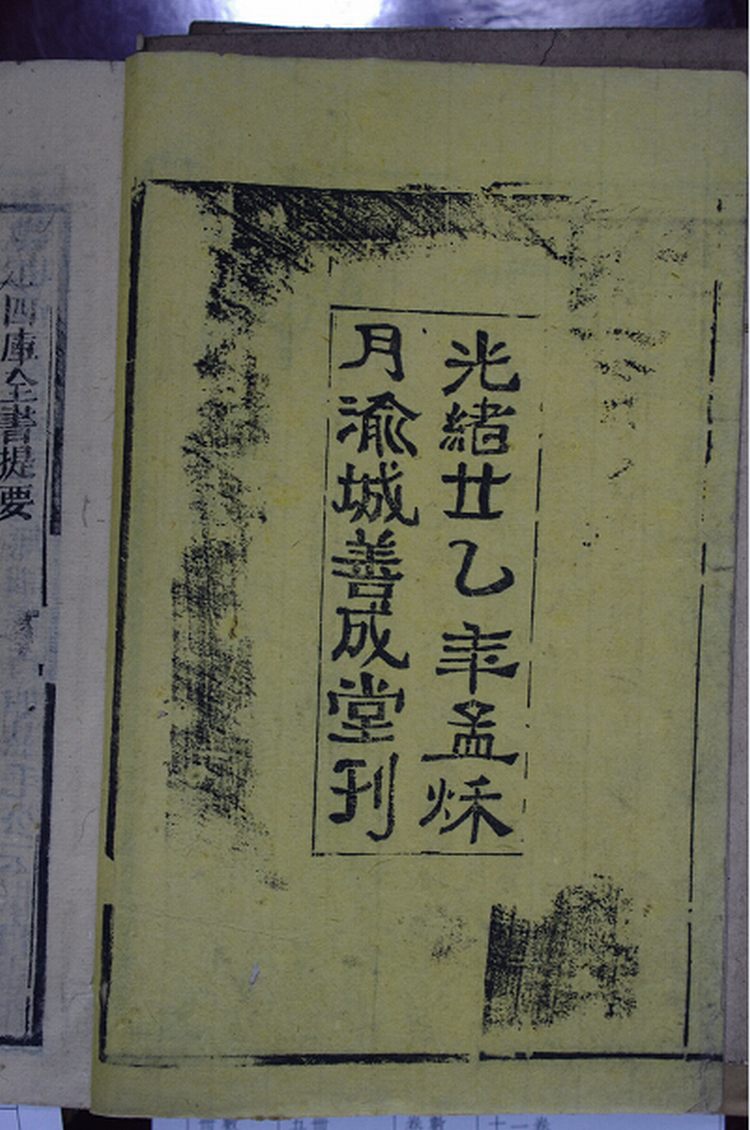 光緒廿乙年孟秌
月渝城善成堂刊
四庫全書提要